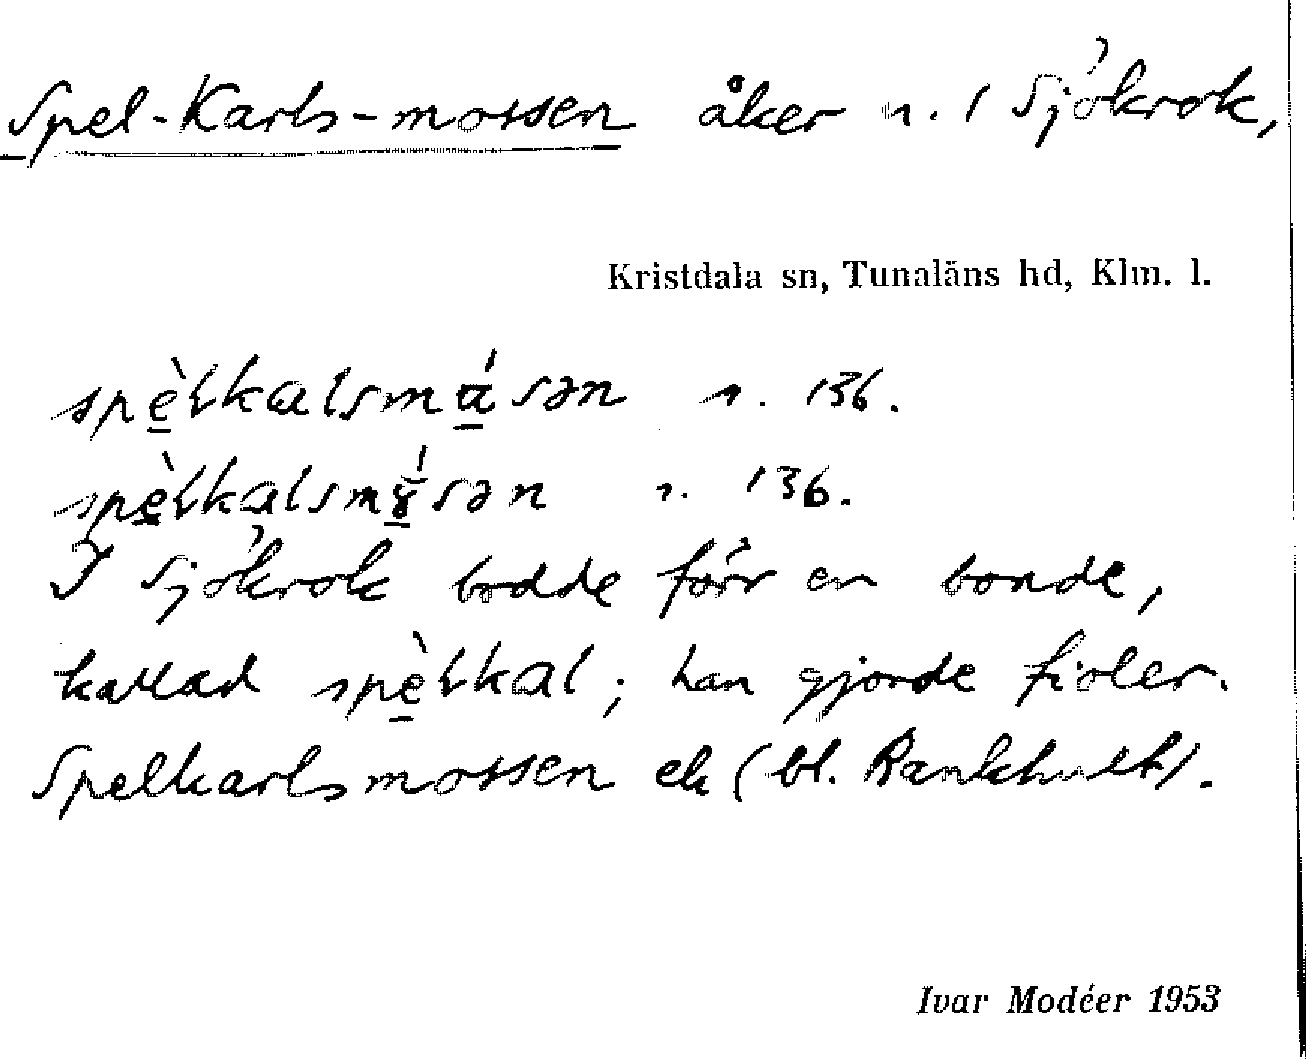 Spel-Karls-mossen åker n. 1 Sjökrok,
Kristdala sn, Tunaläns hd, Klm. l.
spèlkalsmásən n. 136.
spèlkalsmɤ́sən n. 136.
I Sjökrok bodde förr en bonde,
kallad spèlkal; han gjorde fioler.
Spelkarlsmossen ek (bl. Bankhult).
Ivar Modéer 1953